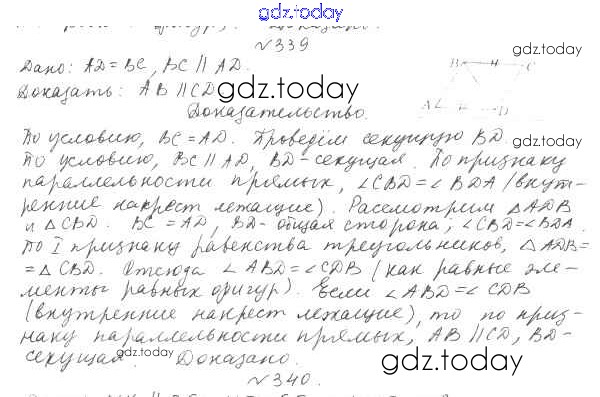 gdz.today
№339
Дано: AD=BC, BC ∥ AD.
gdz.today
Доказать: AB ∥ CD
gdz.today
B C
A D
gdz.today
gdz.today
Доказательство.
По условию, BC=AD. Проведём секущую BD.
gdz.today
По условию, BC ∥ AD, BD-секущая. По признаку
параллельности прямых, ∠CBD=∠BDA (внут-
ренние накрест лежащие). Рассмотрим △ADB
и △CBD. BC=AD, BD-общая сторона; ∠CBD=∠BDA.
По I признаку равенства треугольников, △ADB=
=△CBD. Отсюда ∠ABD=∠CDB (как равные эле-
менты равных фигур). Если ∠ABD=∠CDB
(внутренние накрест лежащие), то по приз-
наку параллельности прямых, AB ∥ CD, BD-
секущая. gdz.today Доказано.
gdz.today
№340.
gdz.today